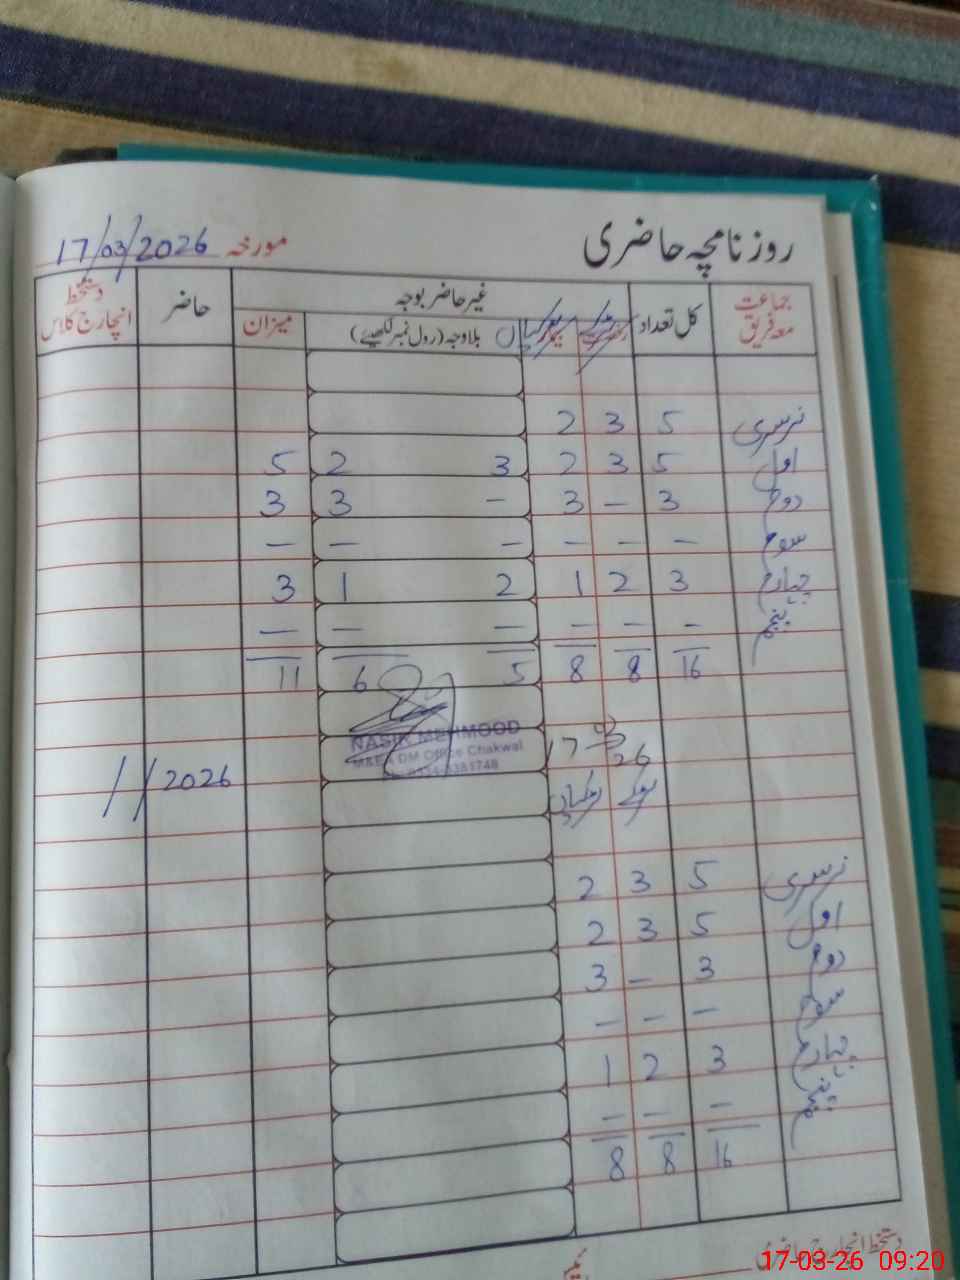 روزنامچہ حاضری
مورخہ 17/03/2026
جماعت معہ فریق کل تعداد غیر حاضر بوجہ حاضر دستخط انچارج کلاس
بلاوجہ (رول نمبر لکھیئے) میزان
نرسری 5 3 2
اول 5 3 2 3 2 5
دوم 3 – 3 – 3 3
سوم – – – – – –
چہارم 3 2 1 2 1 3
پنجم – – – – – –
16 8 8 5 6 11
NASIR MEHMOOD
M&EA DM Office Chakwal
17
26
/ / 2026
لڑکے لڑکیاں
نرسری 5 3 2
اول 5 3 2
دوم 3 – 3
سوم – – –
چہارم 3 2 1
پنجم – – –
16 8 8
دستخط انچارج حاضری
17-03-26 09:20